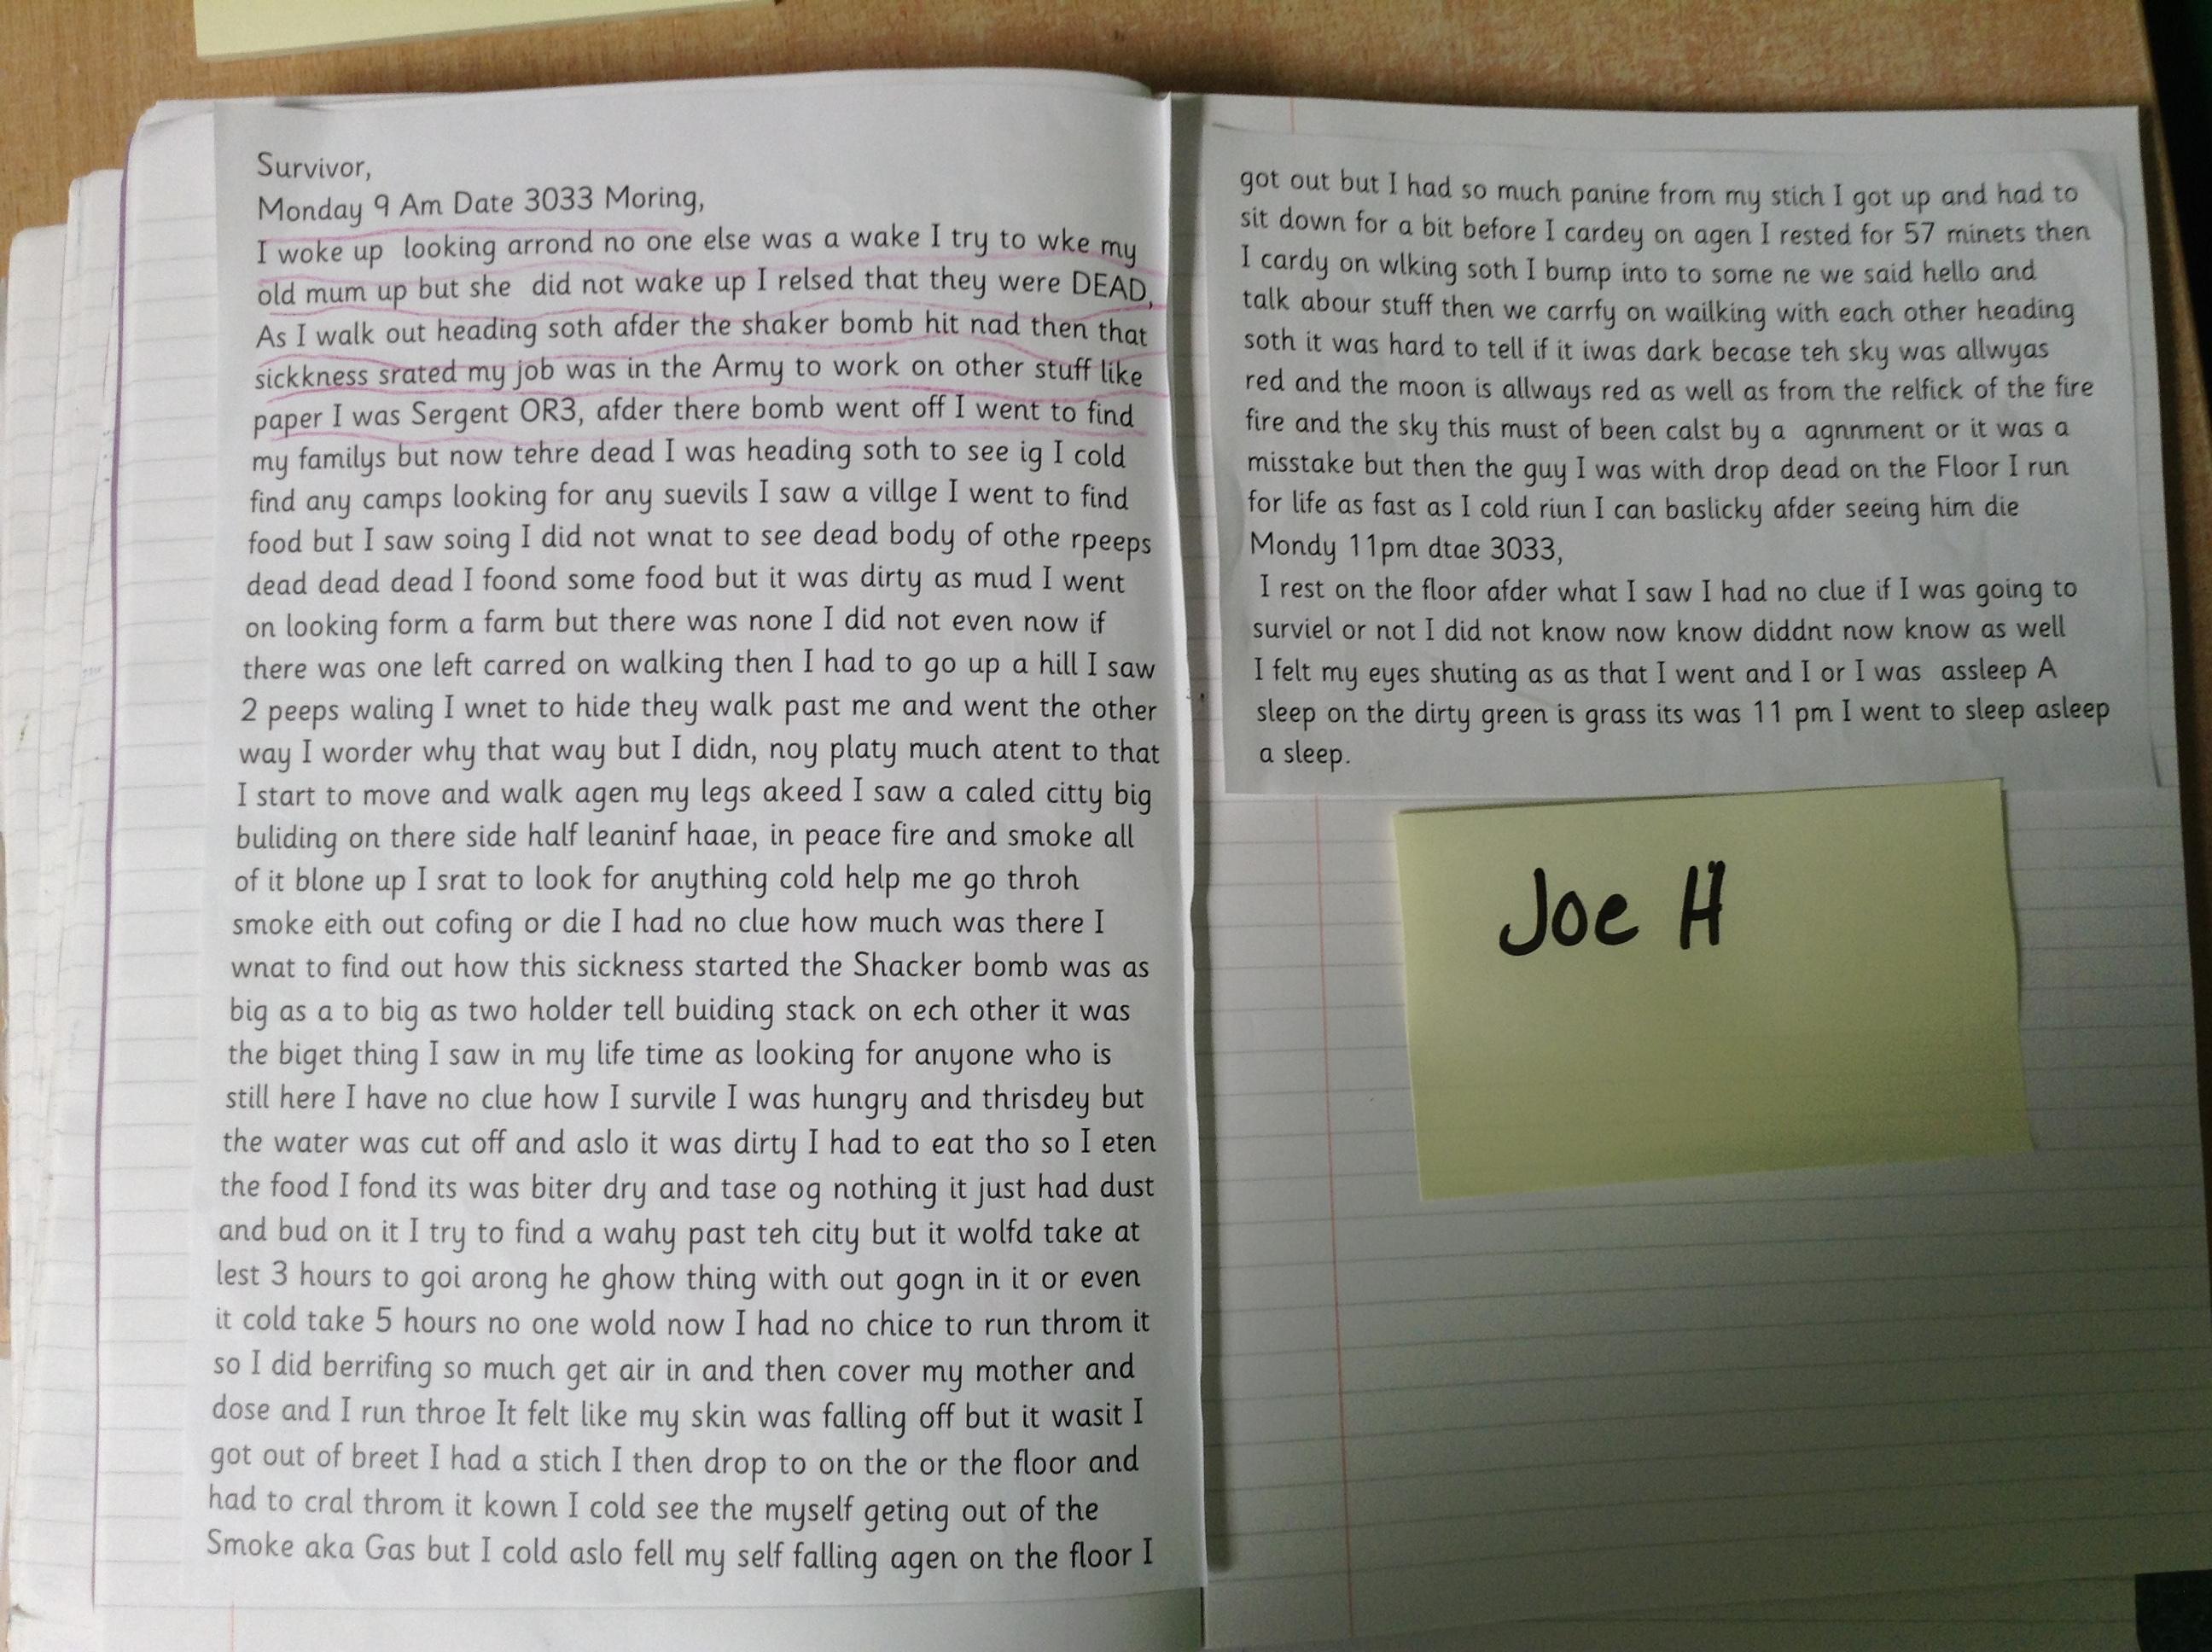 Survivor,
Monday 9 Am Date 3033 Moring,
I woke up looking arrond no one else was a wake I try to wke my
old mum up but she did not wake up I relsed that they were DEAD,
As I walk out heading soth afder the shaker bomb hit nad then that
sickkness srated my job was in the Army to work on other stuff like
paper I was Sergent OR3, afder there bomb went off I went to find
my familys but now tehre dead I was heading soth to see ig I cold
find any camps looking for any suevils I saw a villge I went to find
food but I saw soing I did not wnat to see dead body of othe rpeeps
dead dead dead I foond some food but it was dirty as mud I went
on looking form a farm but there was none I did not even now if
there was one left carred on walking then I had to go up a hill I saw
2 peeps waling I wnet to hide they walk past me and went the other
way I worder why that way but I didn, noy platy much atent to that
I start to move and walk agen my legs akeed I saw a caled citty big
buliding on there side half leaninf haae, in peace fire and smoke all
of it blone up I srat to look for anything cold help me go throh
smoke eith out cofing or die I had no clue how much was there I
wnat to find out how this sickness started the Shacker bomb was as
big as a to big as two holder tell buiding stack on ech other it was
the biget thing I saw in my life time as looking for anyone who is
still here I have no clue how I survile I was hungry and thrisdey but
the water was cut off and aslo it was dirty I had to eat tho so I eten
the food I fond its was biter dry and tase og nothing it just had dust
and bud on it I try to find a wahy past teh city but it wolfd take at
lest 3 hours to goi arong he ghow thing with out gogn in it or even
it cold take 5 hours no one wold now I had no chice to run throm it
so I did berrifing so much get air in and then cover my mother and
dose and I run throe It felt like my skin was falling off but it wasit I
got out of breet I had a stich I then drop to on the or the floor and
had to cral throm it kown I cold see the myself geting out of the
Smoke aka Gas but I cold aslo fell my self falling agen on the floor I
got out but I had so much panine from my stich I got up and had to
sit down for a bit before I cardey on agen I rested for 57 minets then
I cardy on wlking soth I bump into to some ne we said hello and
talk abour stuff then we carrfy on wailking with each other heading
soth it was hard to tell if it iwas dark becase teh sky was allwyas
red and the moon is allways red as well as from the relfick of the fire
fire and the sky this must of been calst by a agnnment or it was a
misstake but then the guy I was with drop dead on the Floor I run
for life as fast as I cold riun I can baslicky afder seeing him die
Mondy 11pm dtae 3033,
I rest on the floor afder what I saw I had no clue if I was going to
surviel or not I did not know now know diddnt now know as well
I felt my eyes shuting as as that I went and I or I was assleep A
sleep on the dirty green is grass its was 11 pm I went to sleep asleep
a sleep.
Joe H